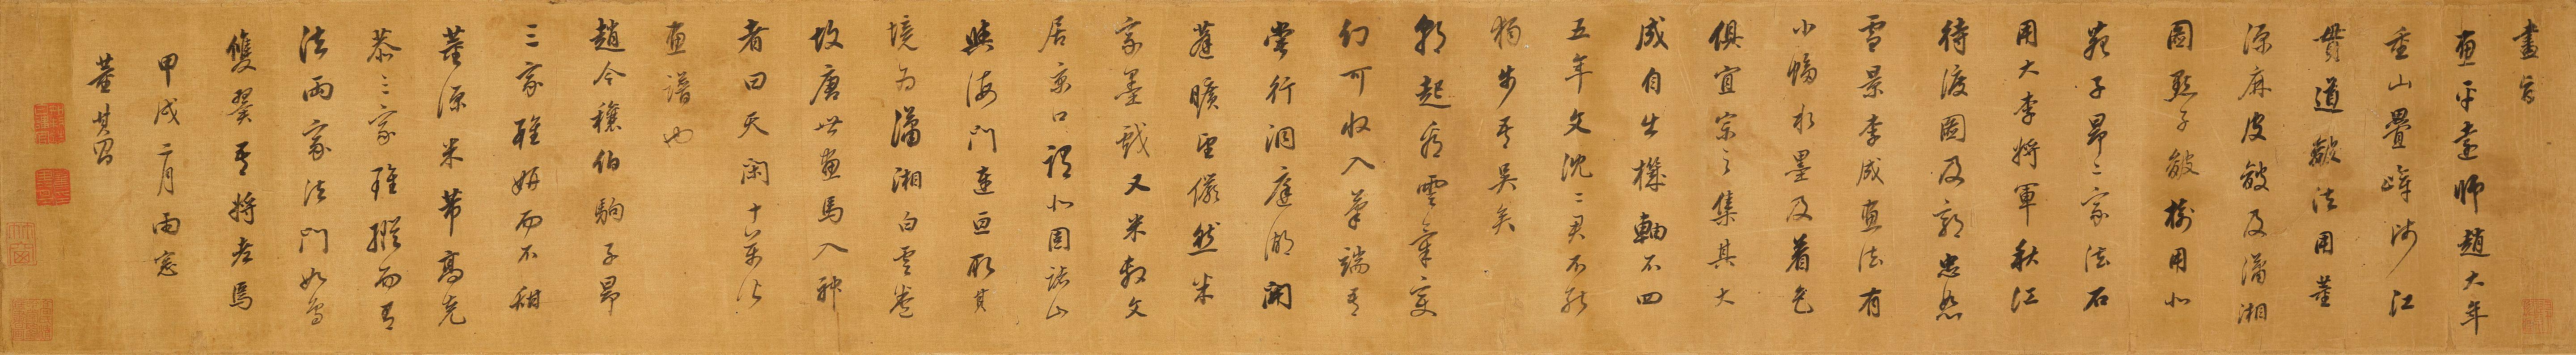 畫旨
畫平遠師趙大年
重山疊嶂師江
貫道皴法用董
源麻皮皴及瀟湘
圖點子皴樹用北
苑子昂二家法石
用大李將軍秋江
待渡圖及郭忠恕
雪景李成畫法有
小幅水墨及着色
俱宜宗之集其大
成自出機軸不四
五年文沈二君不能
獨步吾吳矣
朝起看雲氣變
幻可收入筆端吾
嘗行洞庭湖開
蓬曠望儼然米
家墨戲又米敷文
居京口謂北固諸山
與海門連亘取其
境為瀟湘白雲卷
故唐世畫馬入神
者曰天閑十萬匹
畫譜也
趙令穰伯駒子昂
三家雖妍而不甜
董源米芾高克
恭三家雖縱而有
法兩家法門如鳥
雙翼吾將老焉
甲戌二月雨窓
董其昌